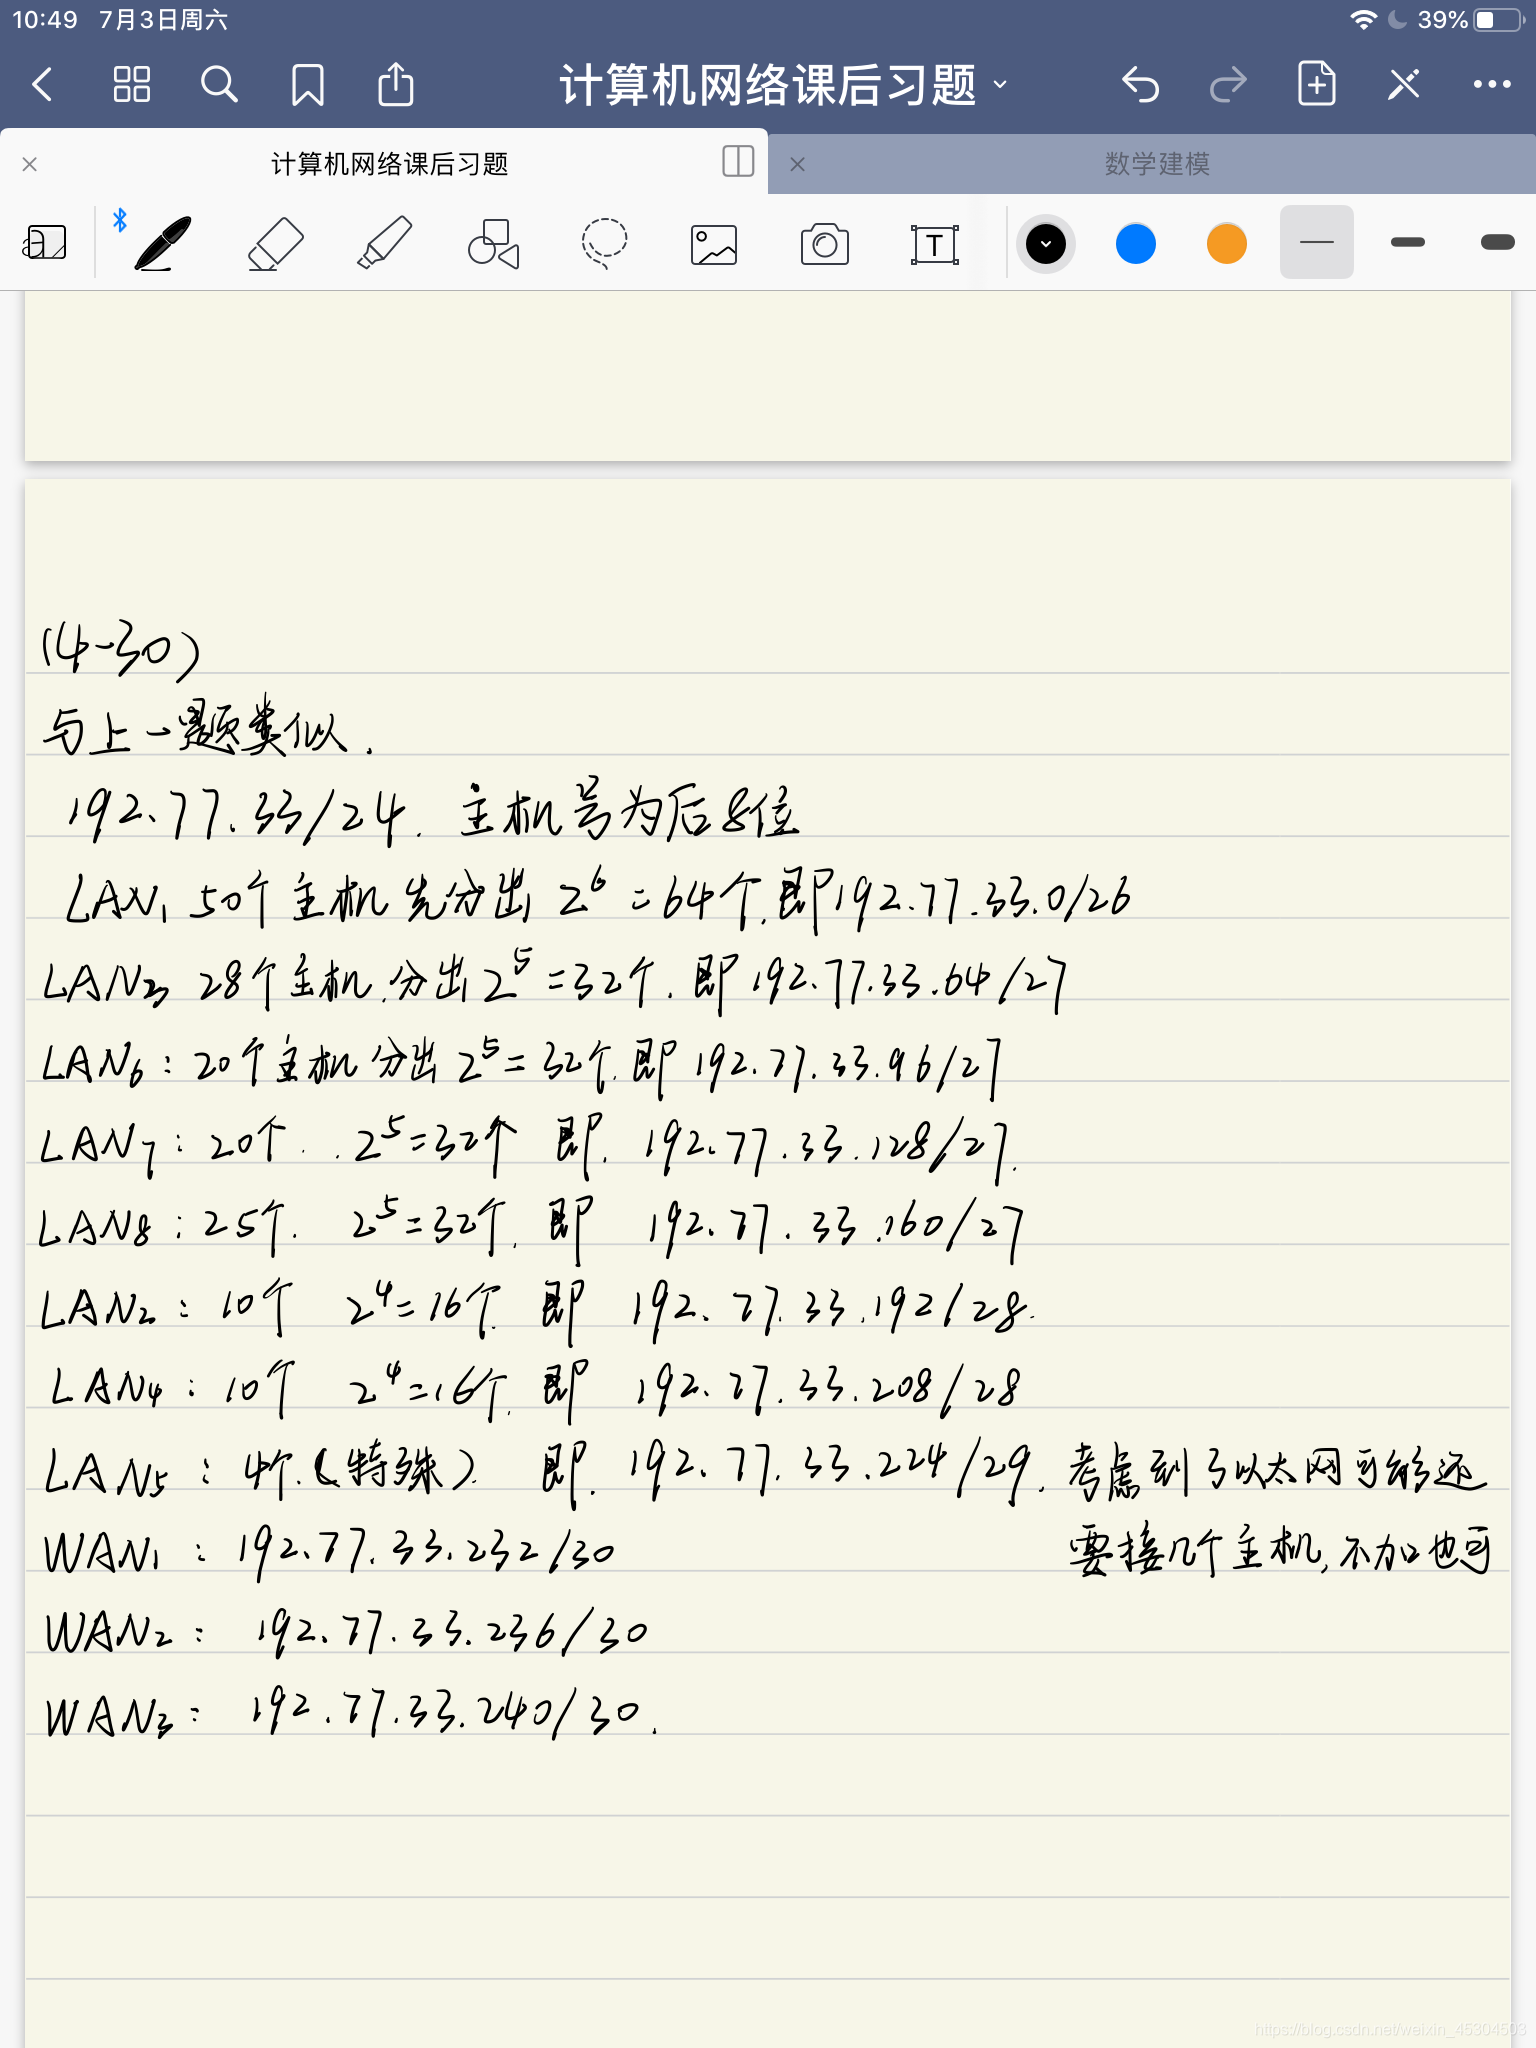 10:49 7月3日周六 39%
计算机网络课后习题
计算机网络课后习题 数学建模
(4-30)
与上一题类似.
192.77.33/24. 主机号为后8位
LAN1 50个主机先分出 2^6 = 64个,即192.77.33.0/26
LAN3 28个主机,分出2^5=32个. 即192.77.33.64/27
LAN6: 20个主机分出 2^5=32个.即 192.77.33.96/27
LAN7: 20个. . 2^5=32个 即. 192.77.33.128/27.
LAN8: 25个. 2^5=32个. 即 192.77.33.160/27
LAN2: 10个 2^4=16个. 即 192.77.33.192/28.
LAN4: 10个 2^4=16个. 即 192.77.33.208/28
LAN5: 4个.(特殊). 即. 192.77.33.224/29. 考虑到了以太网可能还
WAN1: 192.77.33.232/30 要接几个主机,不加也可
WAN2: 192.77.33.236/30
WAN3: 192.77.33.240/30.
https://blog.csdn.net/weixin_45304503